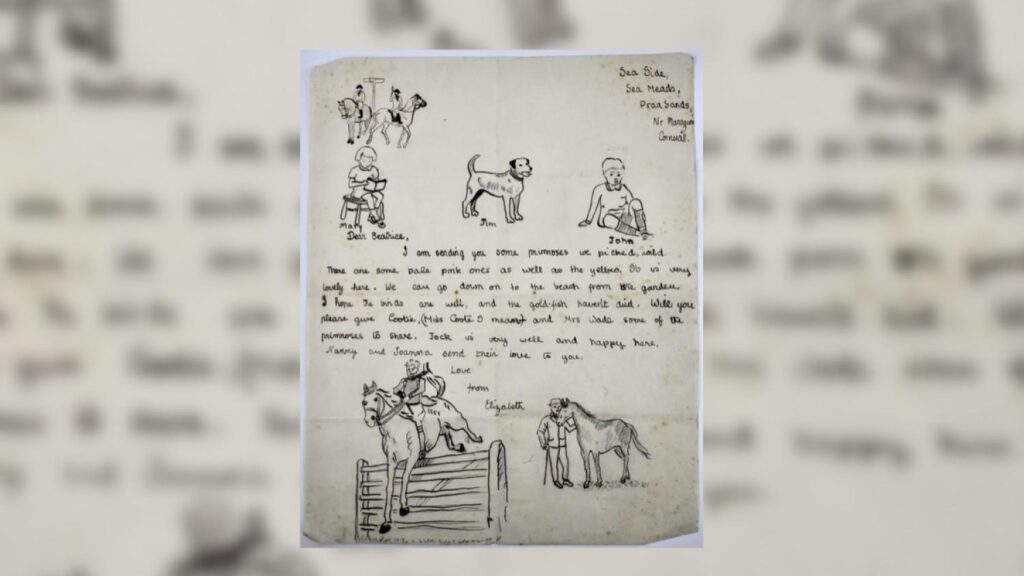 Sea Side,
Sea Meads,
Praa Sands,
Nr
Cornwall.
Mary
Jim
John
Dear Beatrice,
I am sending you some primroses we picked, wild.
There are some pale pink ones as well as the yellow. It is very
lovely here. We can go down on to the beach from the garden.
I hope the birds are well, and the gold-fish haven't died. Will you
please give Cootie, (Miss Coote I mean) and Mrs Wade some of the
primroses to share. Jack is very well and happy here.
Nanny and Joanna send their love to you.
Love
from
Elizabeth